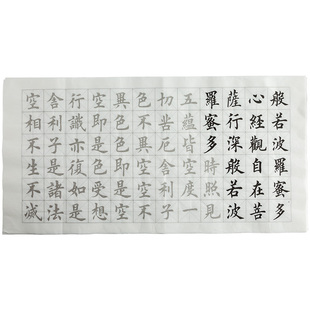 般若波羅蜜多
心經觀自在菩
薩行深般若波
羅蜜多時照見
五蘊皆空度一
切苦厄舍利子
色不異空空不
異色色即是空
空即是色受想
行識亦復如是
舍利子是諸法
空相不生不滅